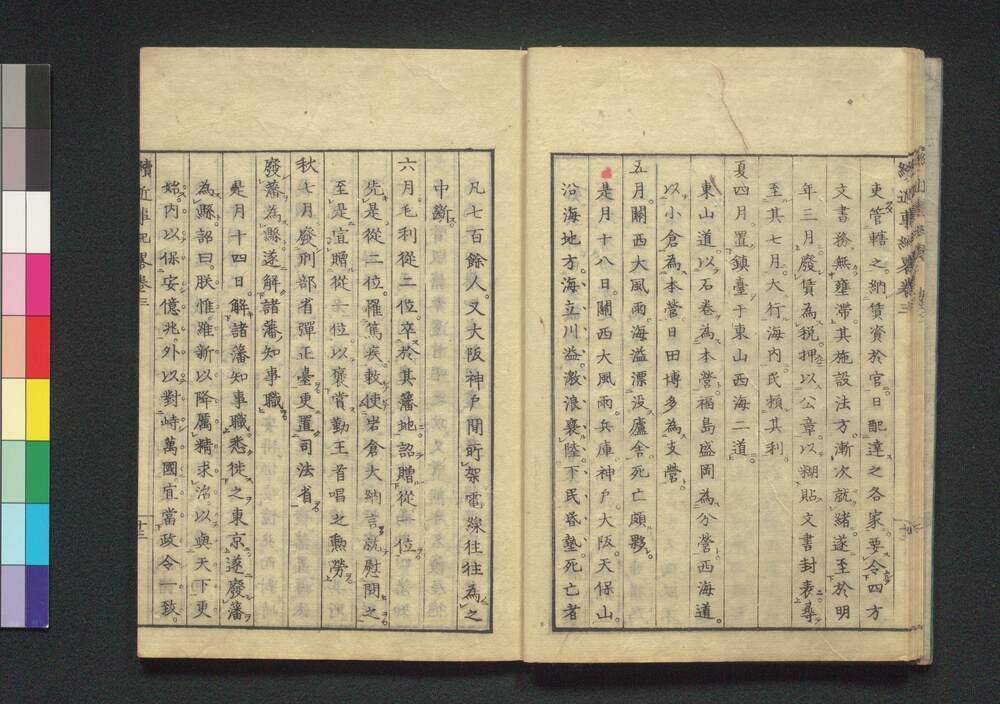 吏管轄之納賃資於官日配達之各家要令四方
文書務無壅滯其施設法方漸次就緒遂至於明
年三月廢賃為税押以公章以糊貼文書封表尋
至其七月大行海内民頼其利
夏四月置鎮臺于東山西海二道
東山道以石卷為本營福島盛岡為分營西海道
以小倉為本營日田博多為支營
五月關西大風雨海溢漂没廬舍死亡頗夥
是月十八日關西大風雨兵庫神戸大阪天保山
沿海地方海立川溢激浪襄陸下民昏墊死亡者
凡七百餘人又大阪神戸間所架電線往往為之
中斷
六月毛利從二位卒於其藩地詔贈從一位
先是從二位罹篤疾敕使岩倉大納言就慰問之
至是宣贈從一位以褒賞勤王首唱之勲勞
秋七月廢刑部省彈正臺更置司法省
廢藩為縣遂解諸藩知事職
是月十四日解諸藩知事職悉徙之東京遂廢藩
為縣詔曰朕惟維新以降厲精求治以與天下更
始内以保安億兆外以對峙萬國宜當政令一致
續近事紀畧卷三
十三